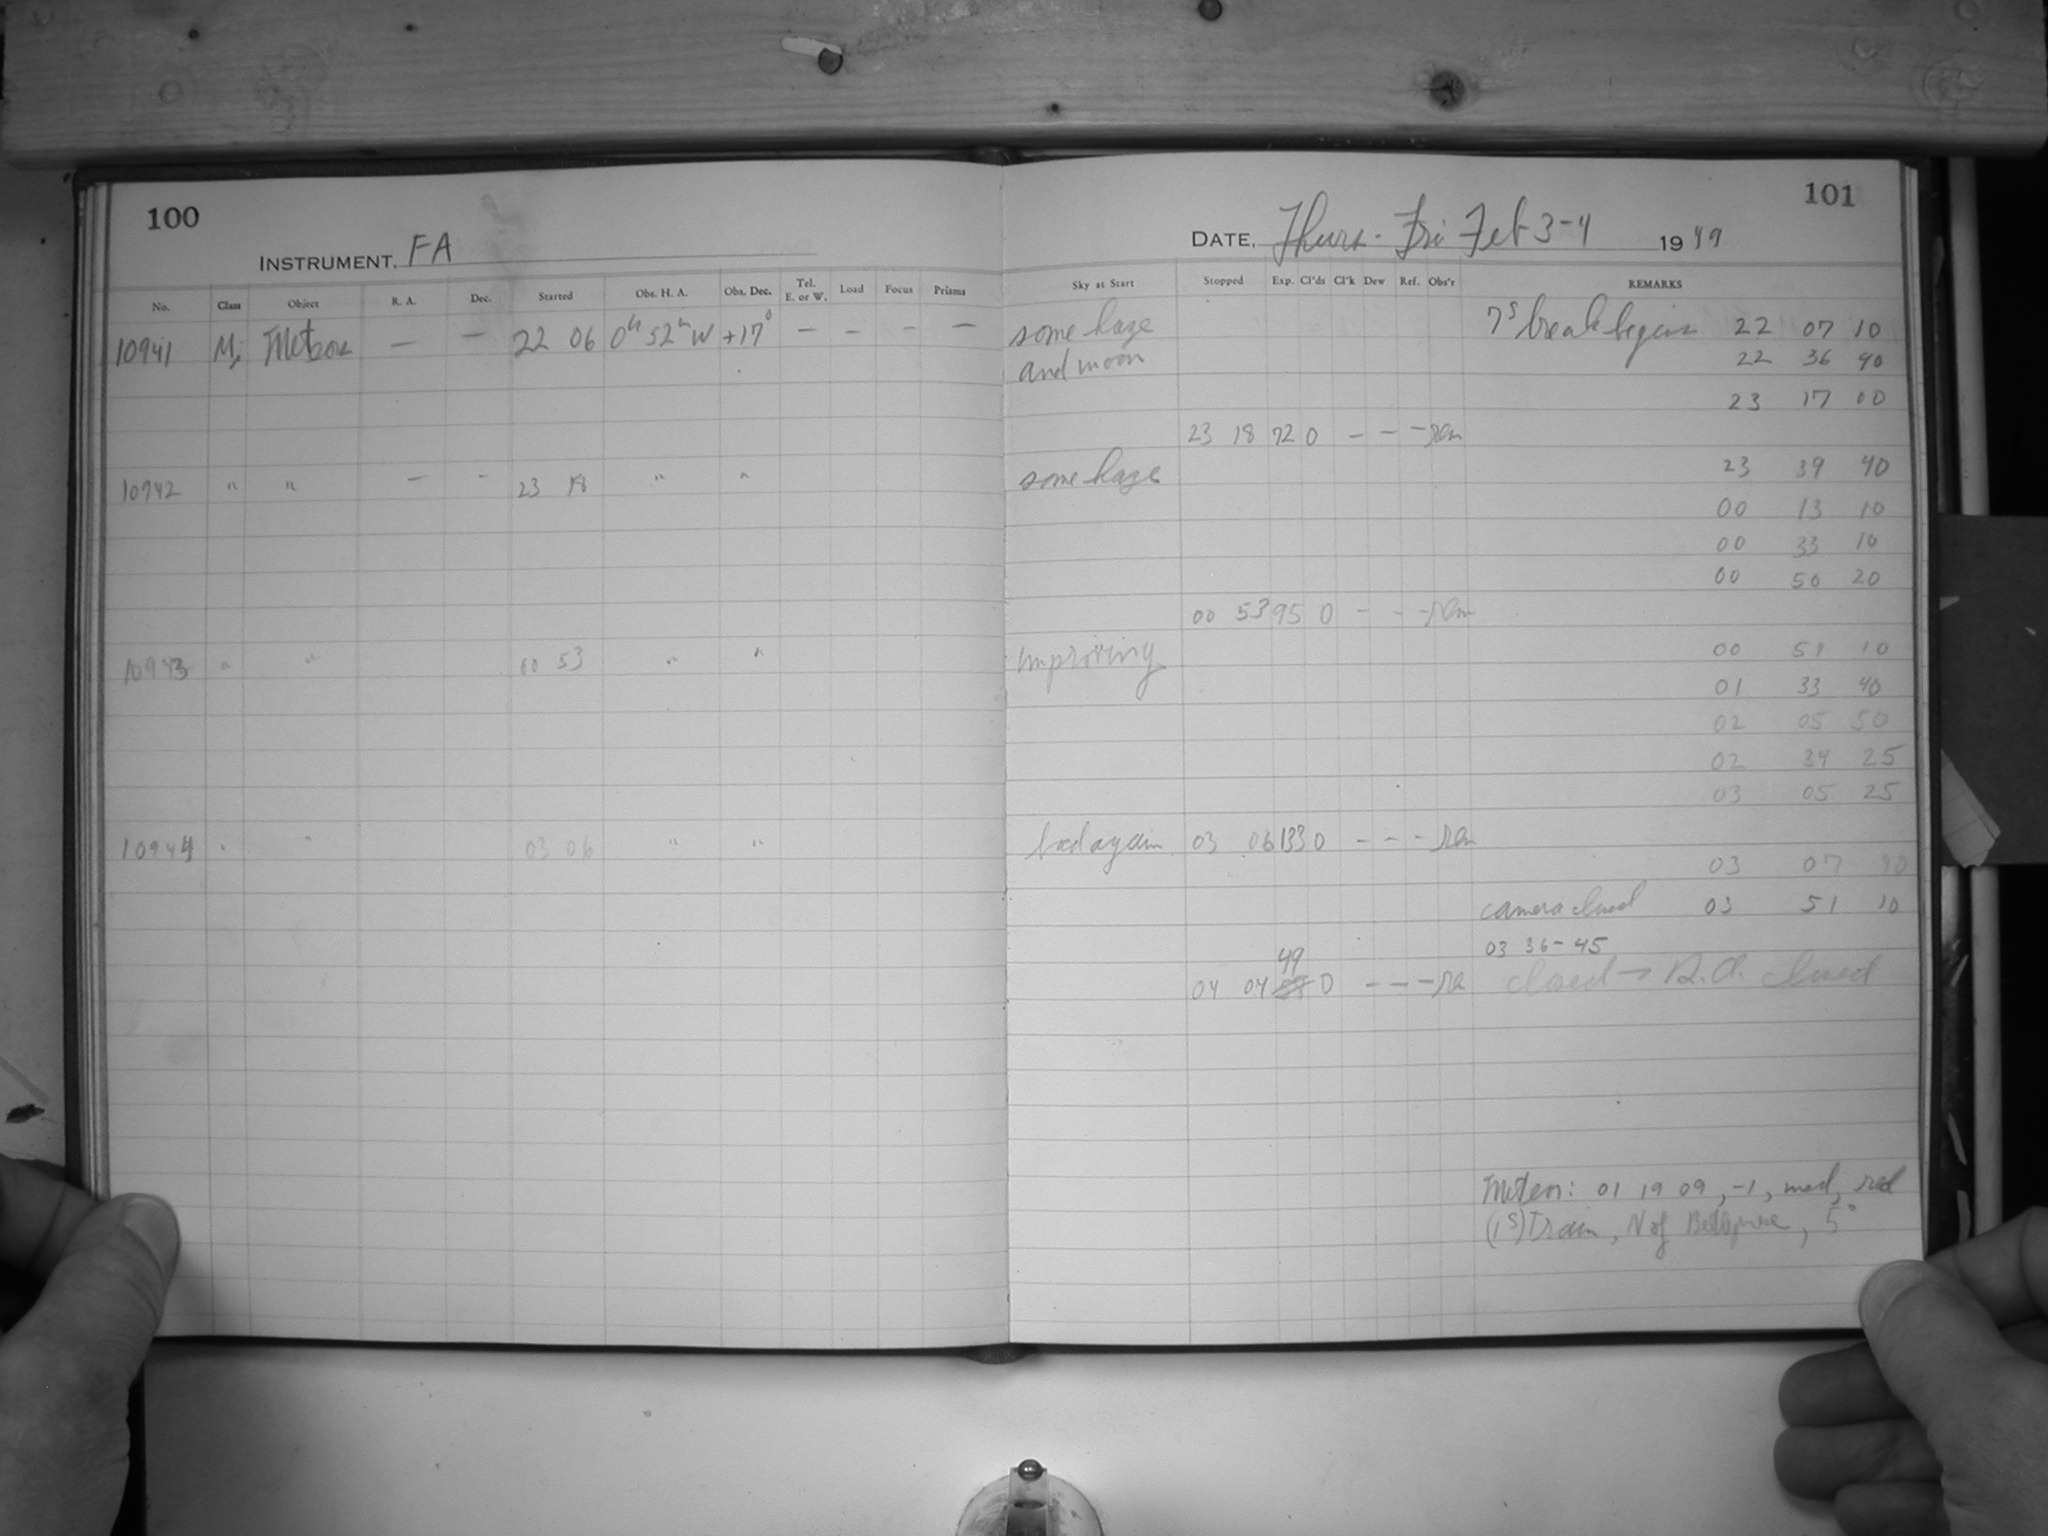 100
INSTRUMENT. FA
No. Class Object R. A. Dec. Started Obs. H. A. Obs. Dec. Tel. E. or W. Load Focus Prisms
10941 M, Meteor — — 22 06 0h 52m W +17° — — — —
10942 " " - - 23 18 " "
10943 " " 00 53 " "
10944 " " 03 06 " "
101
DATE. Thurs - Fri Feb 3-4 1949
Sky at Start Stopped Exp. Cl'ds Cl'k Dew Ref. Obs'r REMARKS
some haze 7s break begins 22 07 10
and moon 22 36 40
23 17 00
23 18 72 0 - - -
some haze 23 39 40
00 13 10
00 33 10
00 50 20
00 53 95 0 - - -
improving 00 51 10
01 33 40
02 05 50
02 34 25
03 05 25
bad again 03 06 133 0 - - -
03 07
camera closed 03 51 10
03 36-45
49
04 04 0 - - - closed → closed
Meteor: 01 19 09, -1, med, red
(1s) Train, N of Bellatrix, 5°